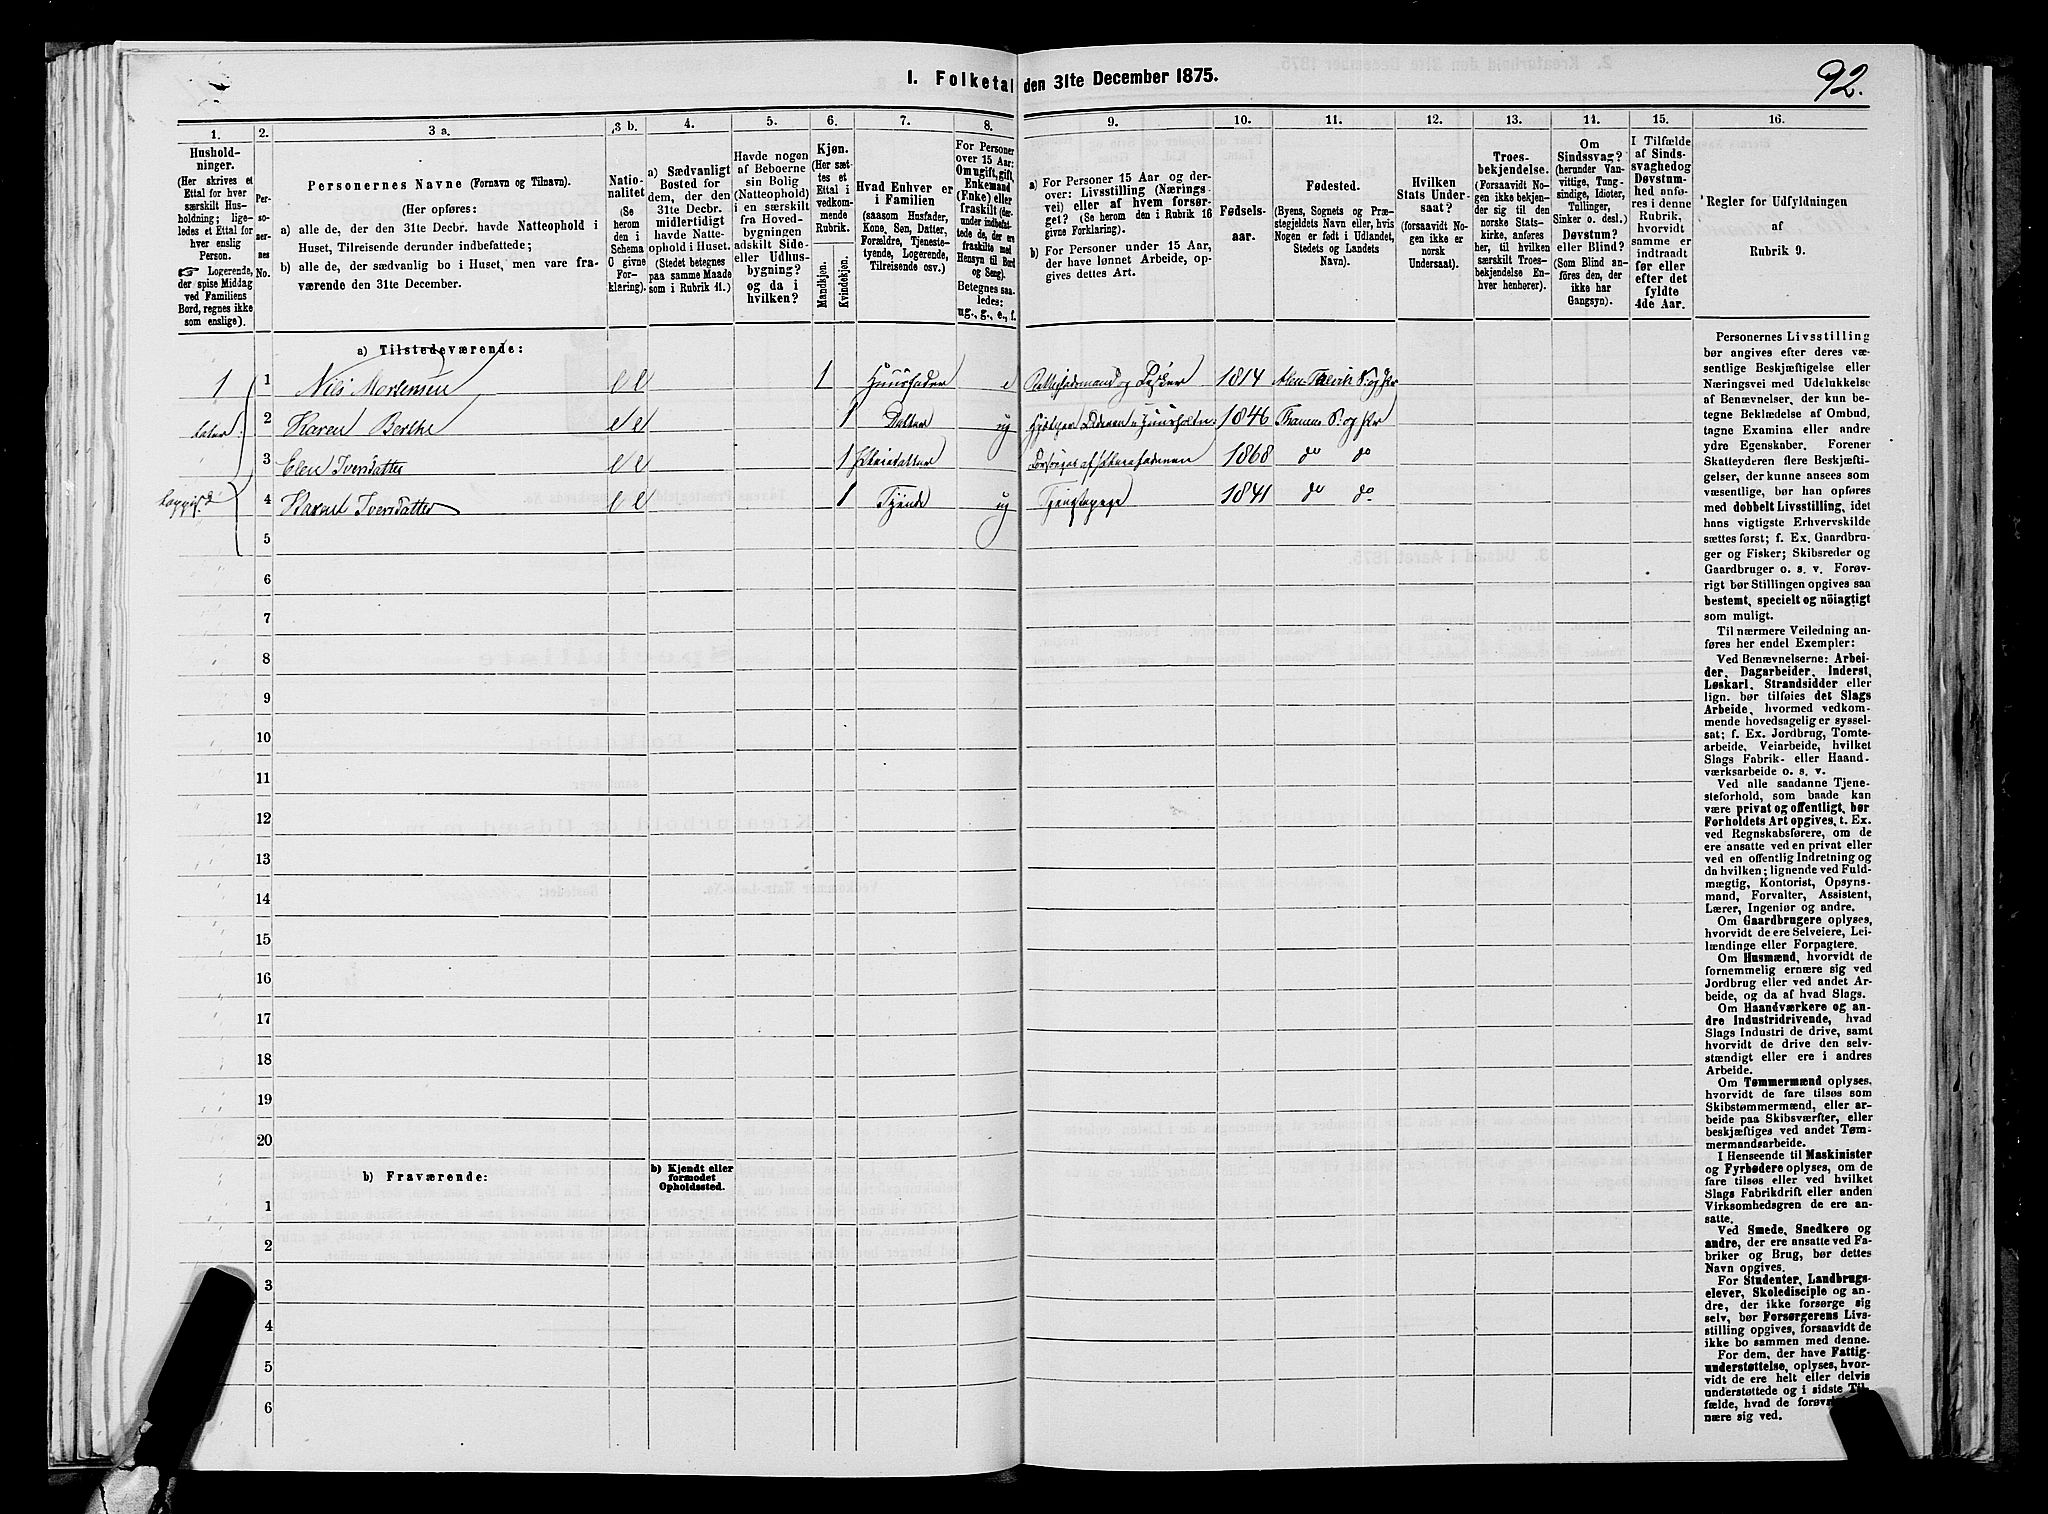 I. Folketal den 31te December 1875.
92.
1.
2.
3 a.
3 b.
4.
5.
6.
7.
8.
9.
10.
11.
12.
13.
14.
15.
16.
Hushold-
ninger.
(Her skrives et
Ettal for hver
særskilt Hus-
holdning; lige-
ledes et Ettal for
hver enslig
Person.
☞ Logerende,
der spise Middag
ved Familiens
Bord, regnes ikke
som enslige).
Per-
so-
ner-
nes
No.
Personernes Navne (Fornavn og Tilnavn).
(Her opføres:
a) alle de, der den 31te Decbr. havde Natteophold i
Huset, Tilreisende derunder indbefattede;
b) alle de, der sædvanlig bo i Huset, men vare fra-
værende den 31te December.
Natio-
nalitet
(Se
herom
den i
Schema
C givne
For-
klaring).
a) Sædvanligt
Bosted for
dem, der den
31te Decbr.
midlertidigt
havde Natte-
ophold i Huset.
(Stedet betegnes
paa samme Maade
som i Rubrik 11.)
Havde nogen
af Beboerne
sin Bolig
(Natteophold)
i en særskilt
fra Hoved-
bygningen
adskilt Side-
eller Udhus-
bygning?
og da i
hvilken?
Kjøn.
(Her sæt-
tes et
Ettal i
vedkom-
mende
Rubrik.
Mandkjøn.
Kvindekjøn.
Hvad Enhver er
i Familien
(saasom Husfader,
Kone, Søn, Datter,
Forældre, Tjeneste-
tyende, Logerende,
Tilreisende osv.)
For Personer
over 15 Aar:
Om ugift, gift,
Enkemand
(Enke) eller
fraskilt (der-
under indbefat-
tede de, der ere
fraskilte med
Hensyn til Bord
og Seng)
Betegnes saa-
ledes:
ug., g., e., f.
a) For Personer 15 Aar og der-
over: Livsstilling (Nærings-
vei) eller af hvem forsør-
get? (Se herom den i Rubrik 16
givne Forklaring).
b) For Personer under 15 Aar,
der have lønnet Arbeide, op-
gives dettes Art.
Fødsels-
aar.
Fødested.
(Byens, Sognets og Præ-
stegjeldets Navn eller, hvis
Nogen er født i Udlandet,
Stedets og Landets
Navn).
Hvilken
Stats Under-
saat?
(forsaavidt No-
gen ikke er
norsk
Undersaat).
Troes-
bekjendelse.
(Forsaavidt No-
gen ikke bekjen-
der sig til den
norske Stats-
kirke, anføres
her, til hvilken
særskilt Troes-
bekjendelse En-
hver henhører).
Om
Sindssvag?
(herunder Van-
vittige, Tung-
sindige, Idioter,
Tullinger,
Sinker o. desl.)
Døvstum?
eller Blind?
(Som Blind an-
føres den, der
ikke har
Gangsyn).
I Tilfælde
af Sinds-
svaghed og
Døvstum-
hed anfø-
res i denne
Rubrik,
hvorvidt
samme er
indtraadt
før eller
efter det
fyldte
4de Aar.
Regler for Udfyldningen
af
Rubrik 9.
a) Tilstedeværende:
1 1 Nils Mortensen 1 Huusfader e 1814
2 Karen Berthe 1 Datter ug 1846
3 Elen Iversdatter 1 1868 do do
4 Iversdatter 1 Tjende ug 1841 do do
5
6
7
8
9
10
11
12
13
14
15
16
17
18
19
20
b) Fraværende:
b) Kjendt eller
formodet
Opholdssted.
1
2
3
4
5
6
Personernes Livsstilling
bør angives efter deres væ-
sentlige Beskjæftigelse eller
Næringsvei med Udelukkelse
af Benævnelser, der kun be-
tegne Beklædelse af Ombud,
tagne Examina eller andre
ydre Egenskaber. Forener
Skatteyderen flere Beskjæfti-
gelser, der kunne ansees som
væsentlige, bør han opføres
med dobbelt Livsstilling, idet
hans vigtigste Erhvervskilde
sættes først; f. Ex. Gaardbru-
ger og Fisker; Skibsreder og
Gaardbruger o. s. v. Forøv-
rigt bør Stillingen opgives saa
bestemt, specielt og nöiagtigt
som muligt.
Til nærmere Veiledning an-
føres her endel Exempler:
Ved Benævnelserne: Arbei-
der, Dagarbeider, Inderst,
Løskarl, Strandsidder eller
lign. bør tilføies det Slags
Arbeide, hvormed vedkom-
mende hovedsagelig er syssel-
sat; f. Ex. Jordbrug, Tomte-
arbeide, Veiarbeide, hvilket
Slags Fabrik- eller Haand-
værksarbeide o. s. v.
Ved alle saadanne Tjene-
steforhold, som baade kan
være privat og offentligt, bør
Forholdets Art opgives, t. Ex.
ved Regnskabsførere, om de
ere ansatte ved en privat eller
ved en offentlig Indretning og
da hvilken; lignende ved Fuld-
mægtig, Kontorist, Opsyns-
mand, Forvalter, Assistent,
Lærer, Ingeniør og andre.
Om Gaardbrugere oplyses,
hvorvidt de ere Selveiere, Lei-
lændinge eller Forpagtere.
Om Husmænd, hvorvidt de
fornemmelig ernære sig ved
Jordbrug eller ved andet Ar-
beide, og da af hvad Slags.
Om Haandværkere og an-
dre Industridrivende, hvad
Slags Industri de drive, samt
hvorvidt de drive den selv-
stændigt eller ere i andres
Arbeide.
Om Tømmermænd oplyses,
hvorvidt de fare tilsøs som
Skibstømmermænd, eller ar-
beide paa Skibsværfter, eller
beskjæftiges ved andet Tøm-
mermandsarbeide.
I Henseende til Maskinister
og Fyrbødere oplyses, om de
fare tilsøs eller ved hvilket
Slags Fabrikdrift eller anden
Virksomhedsgren de ere an-
satte.
Ved Smede, Snedkere og
andre, der ere ansatte ved Fa-
briker og Brug, bør dettes
Navn opgives.
For Studenter, Landbrugs-
elever, Skoledisciple og an-
dre, der ikke forsørge sig
selv, bør Forsørgerens Livs-
stilling opgives, forsaavidt de
ikke bo sammen med denne.
For dem, der have Fattig-
understøttelse, oplyses, hvor-
vidt de ere helt eller delvis
understøttede og i sidste Til-
fælde, hvad de forøvrigt
nære sig ved.